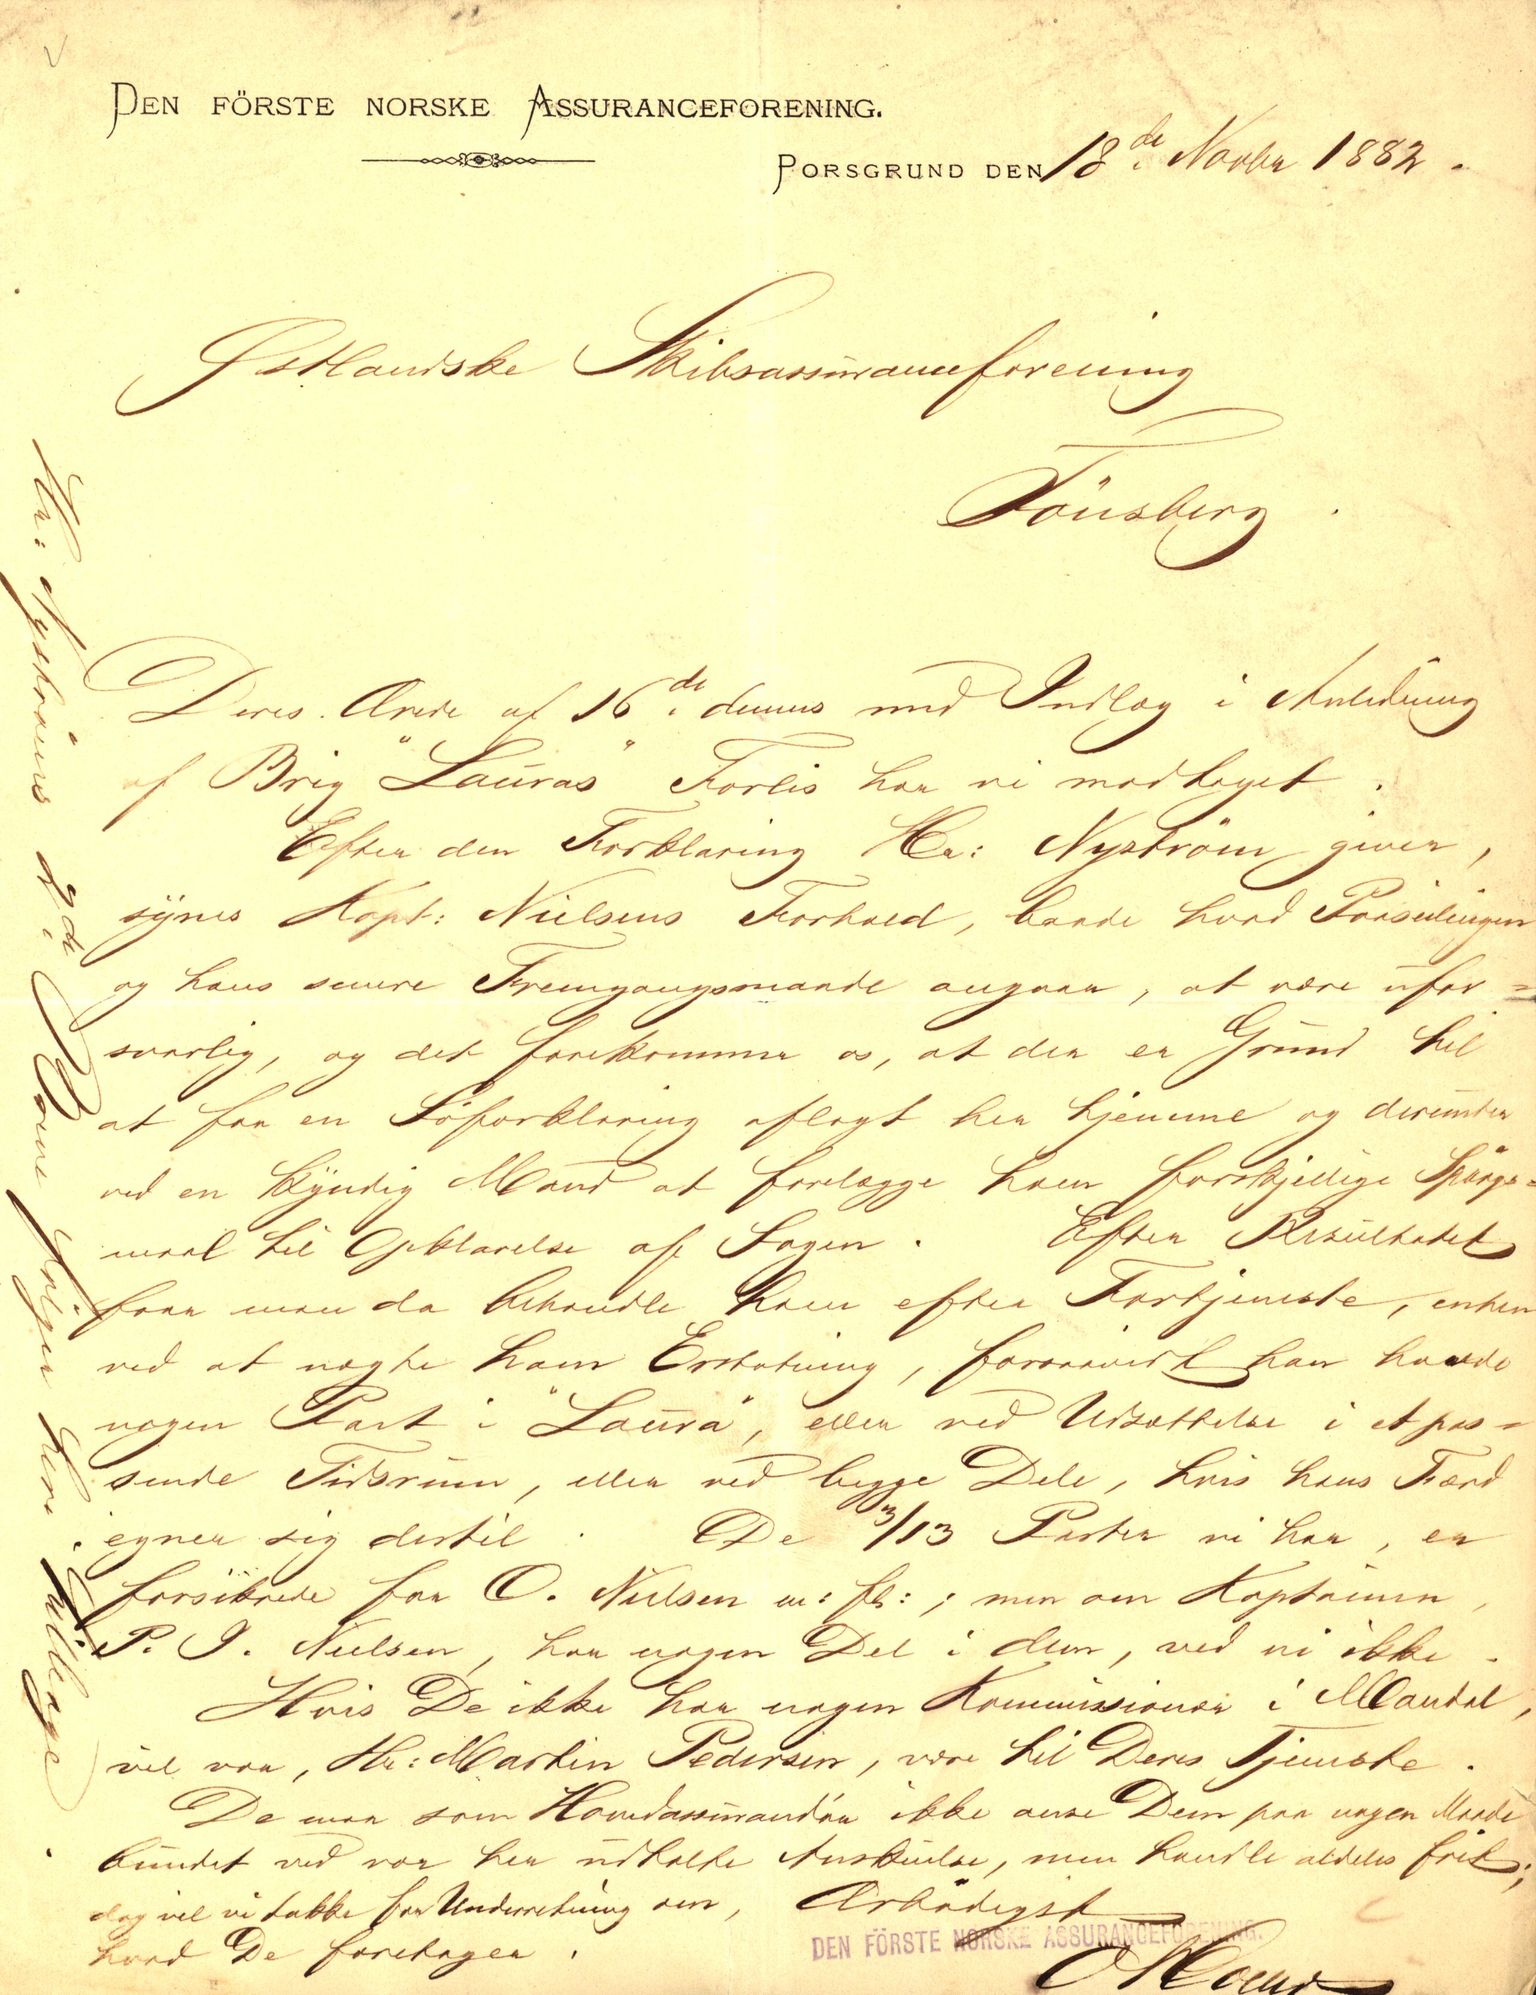 DEN FÖRSTE NORSKE ASSURANCEFORENING.
PORSGRUND DEN 18de Novbr 1882.
Østlandske Skibsassuranceforening
Tönsberg.
Deres Ærede af 16de dennes med Indlæg i Anledning
af Brig "Lauras" Forlis har vi modtaget.
Efter den Forklaring Hr: Nyström giver,
synes Kapt: Nielsens Forhold, baade hvad Paaseilingen
og hans senere Fremgangsmaade angaar, at være ufor=
svarlig, og det forekommer os, at der er Grund til
at faa en Søforklaring aflagt her hjemme og derunder
ved en kyndig Mand at forelægge ham forskjellige Spörgs=
maal til Opklarelse af Sagen. Efter Resultatet
faar man da behandle ham efter Fortjeneste, enten
ved at nægte ham Erstatning, forsaavidt han havde
nogen Part i "Laura", eller ved Udsættelse i et pas=
sende Tidsrum, eller ved begge Dele, hvis hans Færd
egner sig dertil. De 3/13 Parter vi har, er
forsikrede for O. Nielsen m: fl:; men om Kaptainen,
P. J. Nielsen, har nogen Del i dem, ved vi ikke.
Hvis De ikke har nogen Kommissionær i Mandal,
vil vor, Hr: Martin Pedersen, være til Deres Tjeneste.
De maa som Hovedassurandör ikke anse Dem paa nogen Maade
bundet ved vor her udtalte Anskuelse, men handle aldeles frit;
dog vil vi takke for Underretning om,
hvad De foretager.
Ærbödigst
DEN FÖRSTE NORSKE ASSURANCEFORENING.
Hr: Nyströms 2de Breve følger hermed tilbage